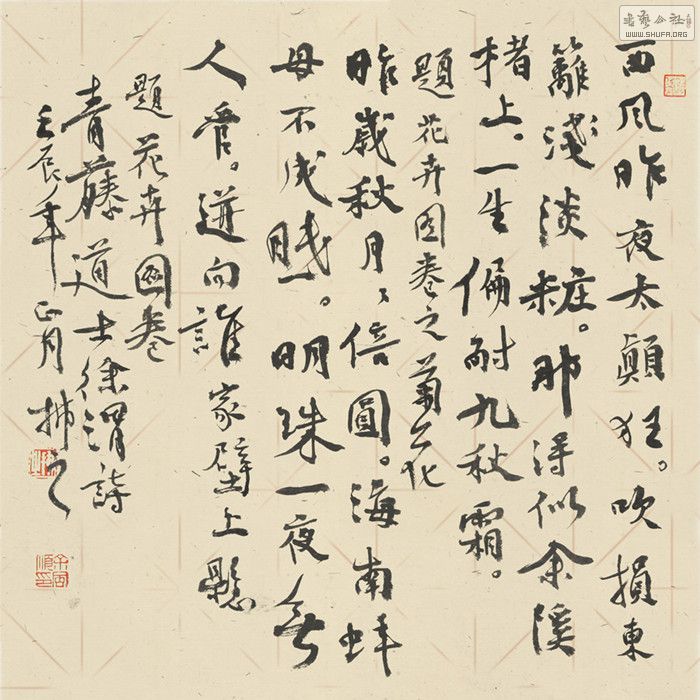 書藝公社
WWW.SHUFA.ORG
西风昨夜太顛狂。吹損東
籬淺淡粧。那得似余溪
楮上。一生偏耐九秋霜。
題花卉图卷之菊花
昨歲秋月、倍圓。海南蚌
母不成眠。明珠一夜無
人管。迸向誰家壁上懸
題花卉图卷
青藤道士徐渭詩
壬辰年正月拂之